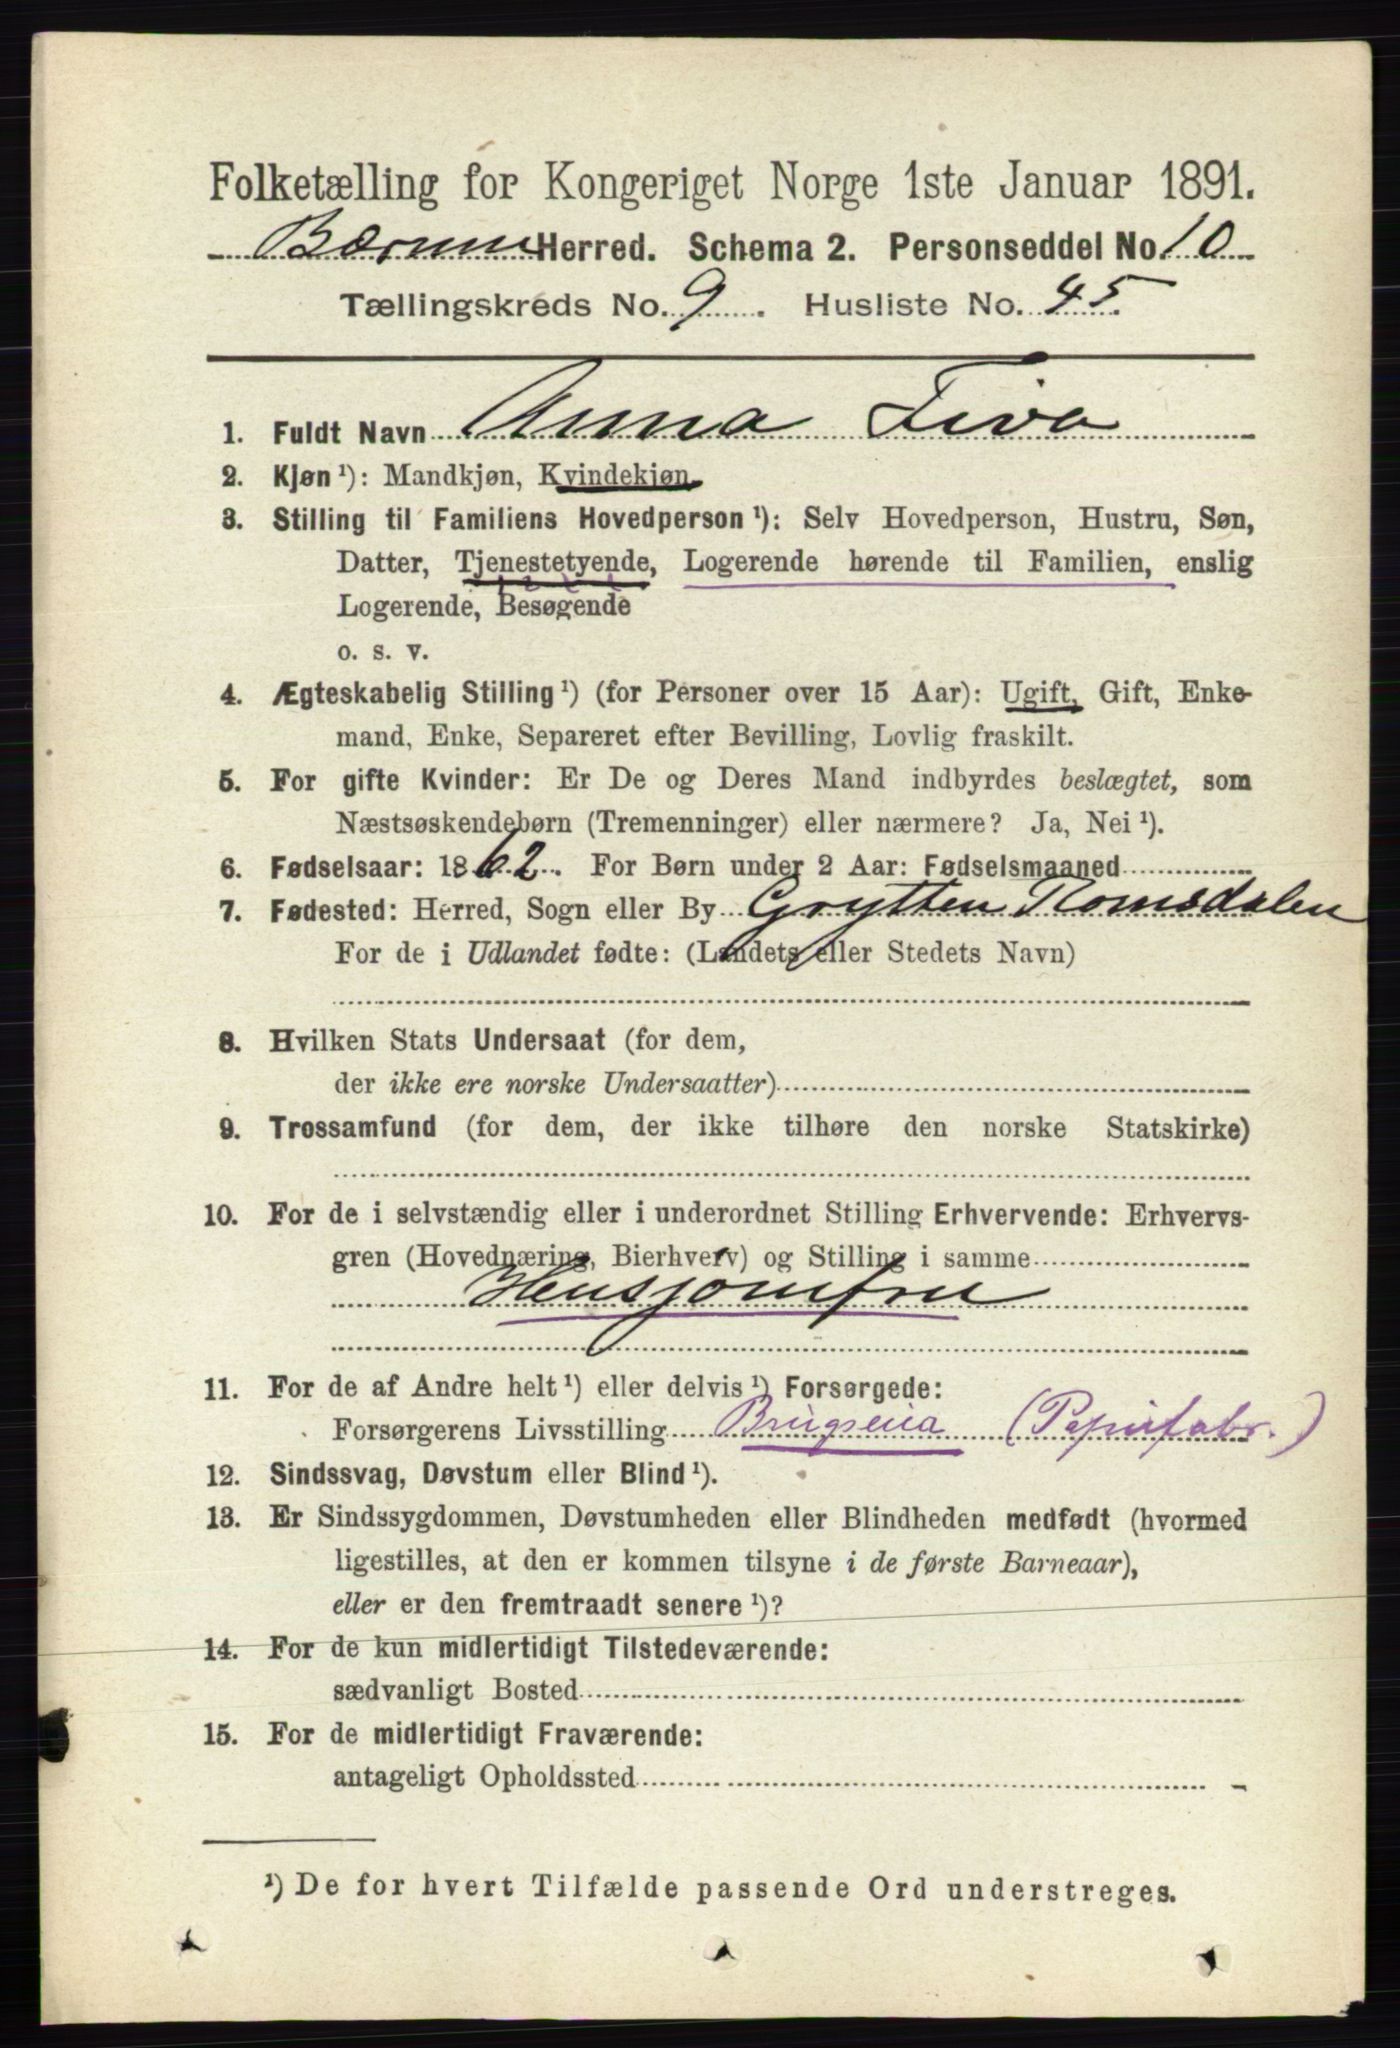 Folketælling for Kongeriget Norge 1ste Januar 1891.
Bærum Herred. Schema 2. Personseddel No. 10
Tællingskreds No. 9. Husliste No. 45
1. Fuldt Navn Anna Fiva
2. Kjøn ¹): Mandkjøn, Kvindekjøn.
3. Stilling til Familiens Hovedperson ¹): Selv Hovedperson, Hustru, Søn,
Datter, Tjenestetyende, Logerende hørende til Familien, enslig
Logerende, Besøgende
o. s. v.
4. Ægteskabelig Stilling ¹) (for Personer over 15 Aar): Ugift, Gift, Enke-
mand, Enke, Separeret efter Bevilling, Lovlig fraskilt.
5. For gifte Kvinder: Er De og Deres Mand indbyrdes beslægtet, som
Næstsøskendebørn (Tremenninger) eller nærmere? Ja, Nei ¹).
6. Fødselsaar: 1862. For Børn under 2 Aar: Fødselsmaaned
7. Fødested: Herred, Sogn eller By Grytten Romsdalen
For de i Udlandet fødte: (Landets eller Stedets Navn)
8. Hvilken Stats Undersaat (for dem,
der ikke ere norske Undersaatter)
9. Trossamfund (for dem, der ikke tilhøre den norske Statskirke)
10. For de i selvstændig eller i underordnet Stilling Erhvervende: Erhvervs-
gren (Hovednæring, Bierhverv) og Stilling i samme
Husjomfru
11. For de af Andre helt ¹) eller delvis ¹) Forsørgede:
Forsørgerens Livsstilling Brugseiia (Papirfabr.)
12. Sindssvag, Døvstum eller Blind ¹).
13. Er Sindssygdommen, Døvstumheden eller Blindheden medfødt (hvormed
ligestilles, at den er kommen tilsyne i de første Barneaar),
eller er den fremtraadt senere ¹)?
14. For de kun midlertidigt Tilstedeværende:
sædvanligt Bosted
15. For de midlertidigt Fraværende:
antageligt Opholdssted
¹) De for hvert Tilfælde passende Ord understreges.